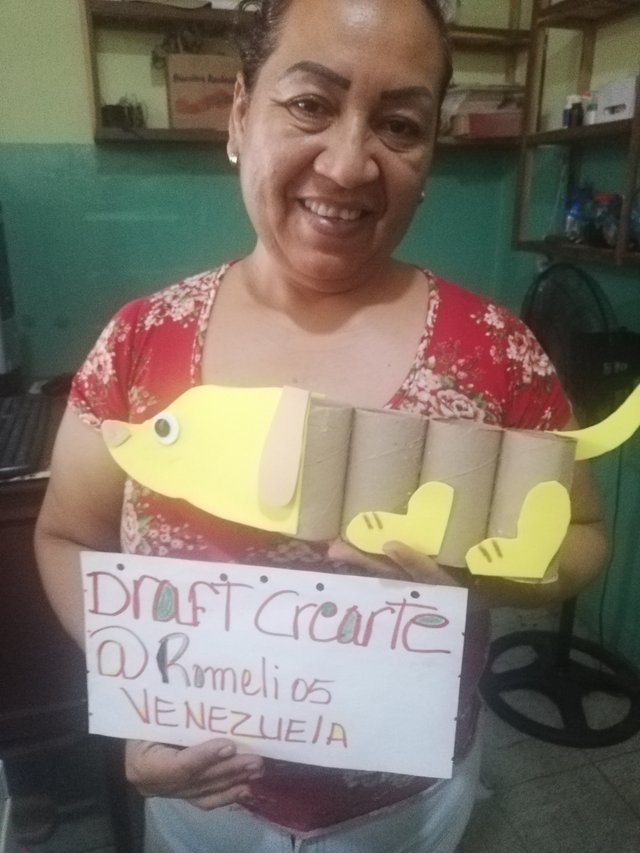 Draft Crearte
@Romeli05
VENEZUELA